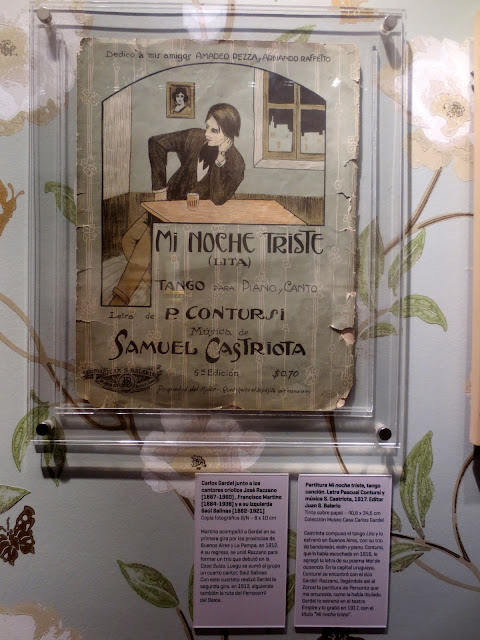 Dedico á mis amigos AMADEO REZZA, y ARNANDO RAFFETTO
MI NOCHE TRISTE
(LITA)
TANGO PARA PIANO, y CANTO
Letra de P. CONTURSI
Música de
SAMUEL CASTRIOTA
5ª Edición $0.70
Propiedad del
Carlos Gardel junto a los
cantores criollos José Razzano
[1887-1960], Francisco Martino
[1884-1938] y a su izquierda
Saúl Salinas [1882-1921]
Copia fotográfica B/N - 8 x 10 cm
Martino acompañó a Gardel en su
primera gira por las provincias de
Buenos Aires y La Pampa, en 1912.
A su regreso, se unió Razzano para
formar un trío que debutó en la
Casa Suiza. Luego se sumó al grupo
un cuarto cantor: Saúl Salinas.
Con este cuarteto realizó Gardel la
segunda gira, en 1913, siguiendo
también la ruta del Ferrocarril
del Oeste.
Partitura Mi noche triste, tango
canción. Letra Pascual Contursi y
música S. Castriota, 1917. Editor
Juan S. Balerio
Tinta sobre papel -
Colección Museo Casa Carlos Gardel
Castriota compuso el tango Lita y lo
estrenó en Buenos Aires, con su trío
de bandoneón, violín y piano. Contursi,
que lo había escuchado en 1916, le
agregó la letra de su poema
ausencia. En la capital uruguaya,
Contursi se encontró con el dúo
Gardel-Razzano, llegándole así al
Zorzal la partitura de Percanta que
me amuraste, como la había titulado.
Gardel la estrenó en el teatro
Empire y lo grabó en 1917, con el
título "Mi noche triste".